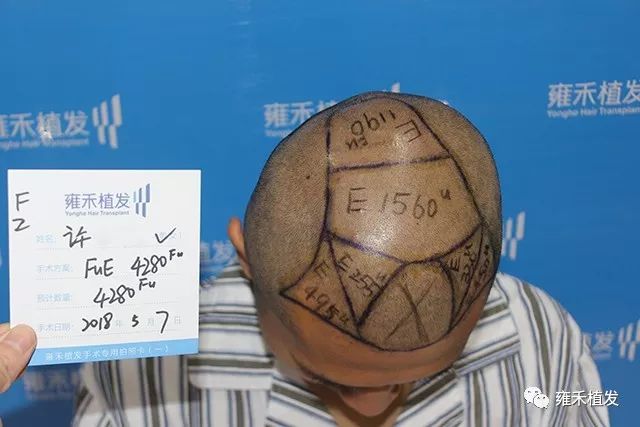 雍禾植发
Yonghe Hair Transplant
雍禾植发
雍禾植发
雍禾植发
Yonghe Hair Transplant
F
2
姓名: 许 ✓
手术方案: FuE 4280Fu
预计数量: 4280Fu
手术日期: 2018年5月7日
雍禾植发手术专用拍照卡(一)
E 1190
Fu
E 1560u
E
495u
E
255u
E
雍禾植发